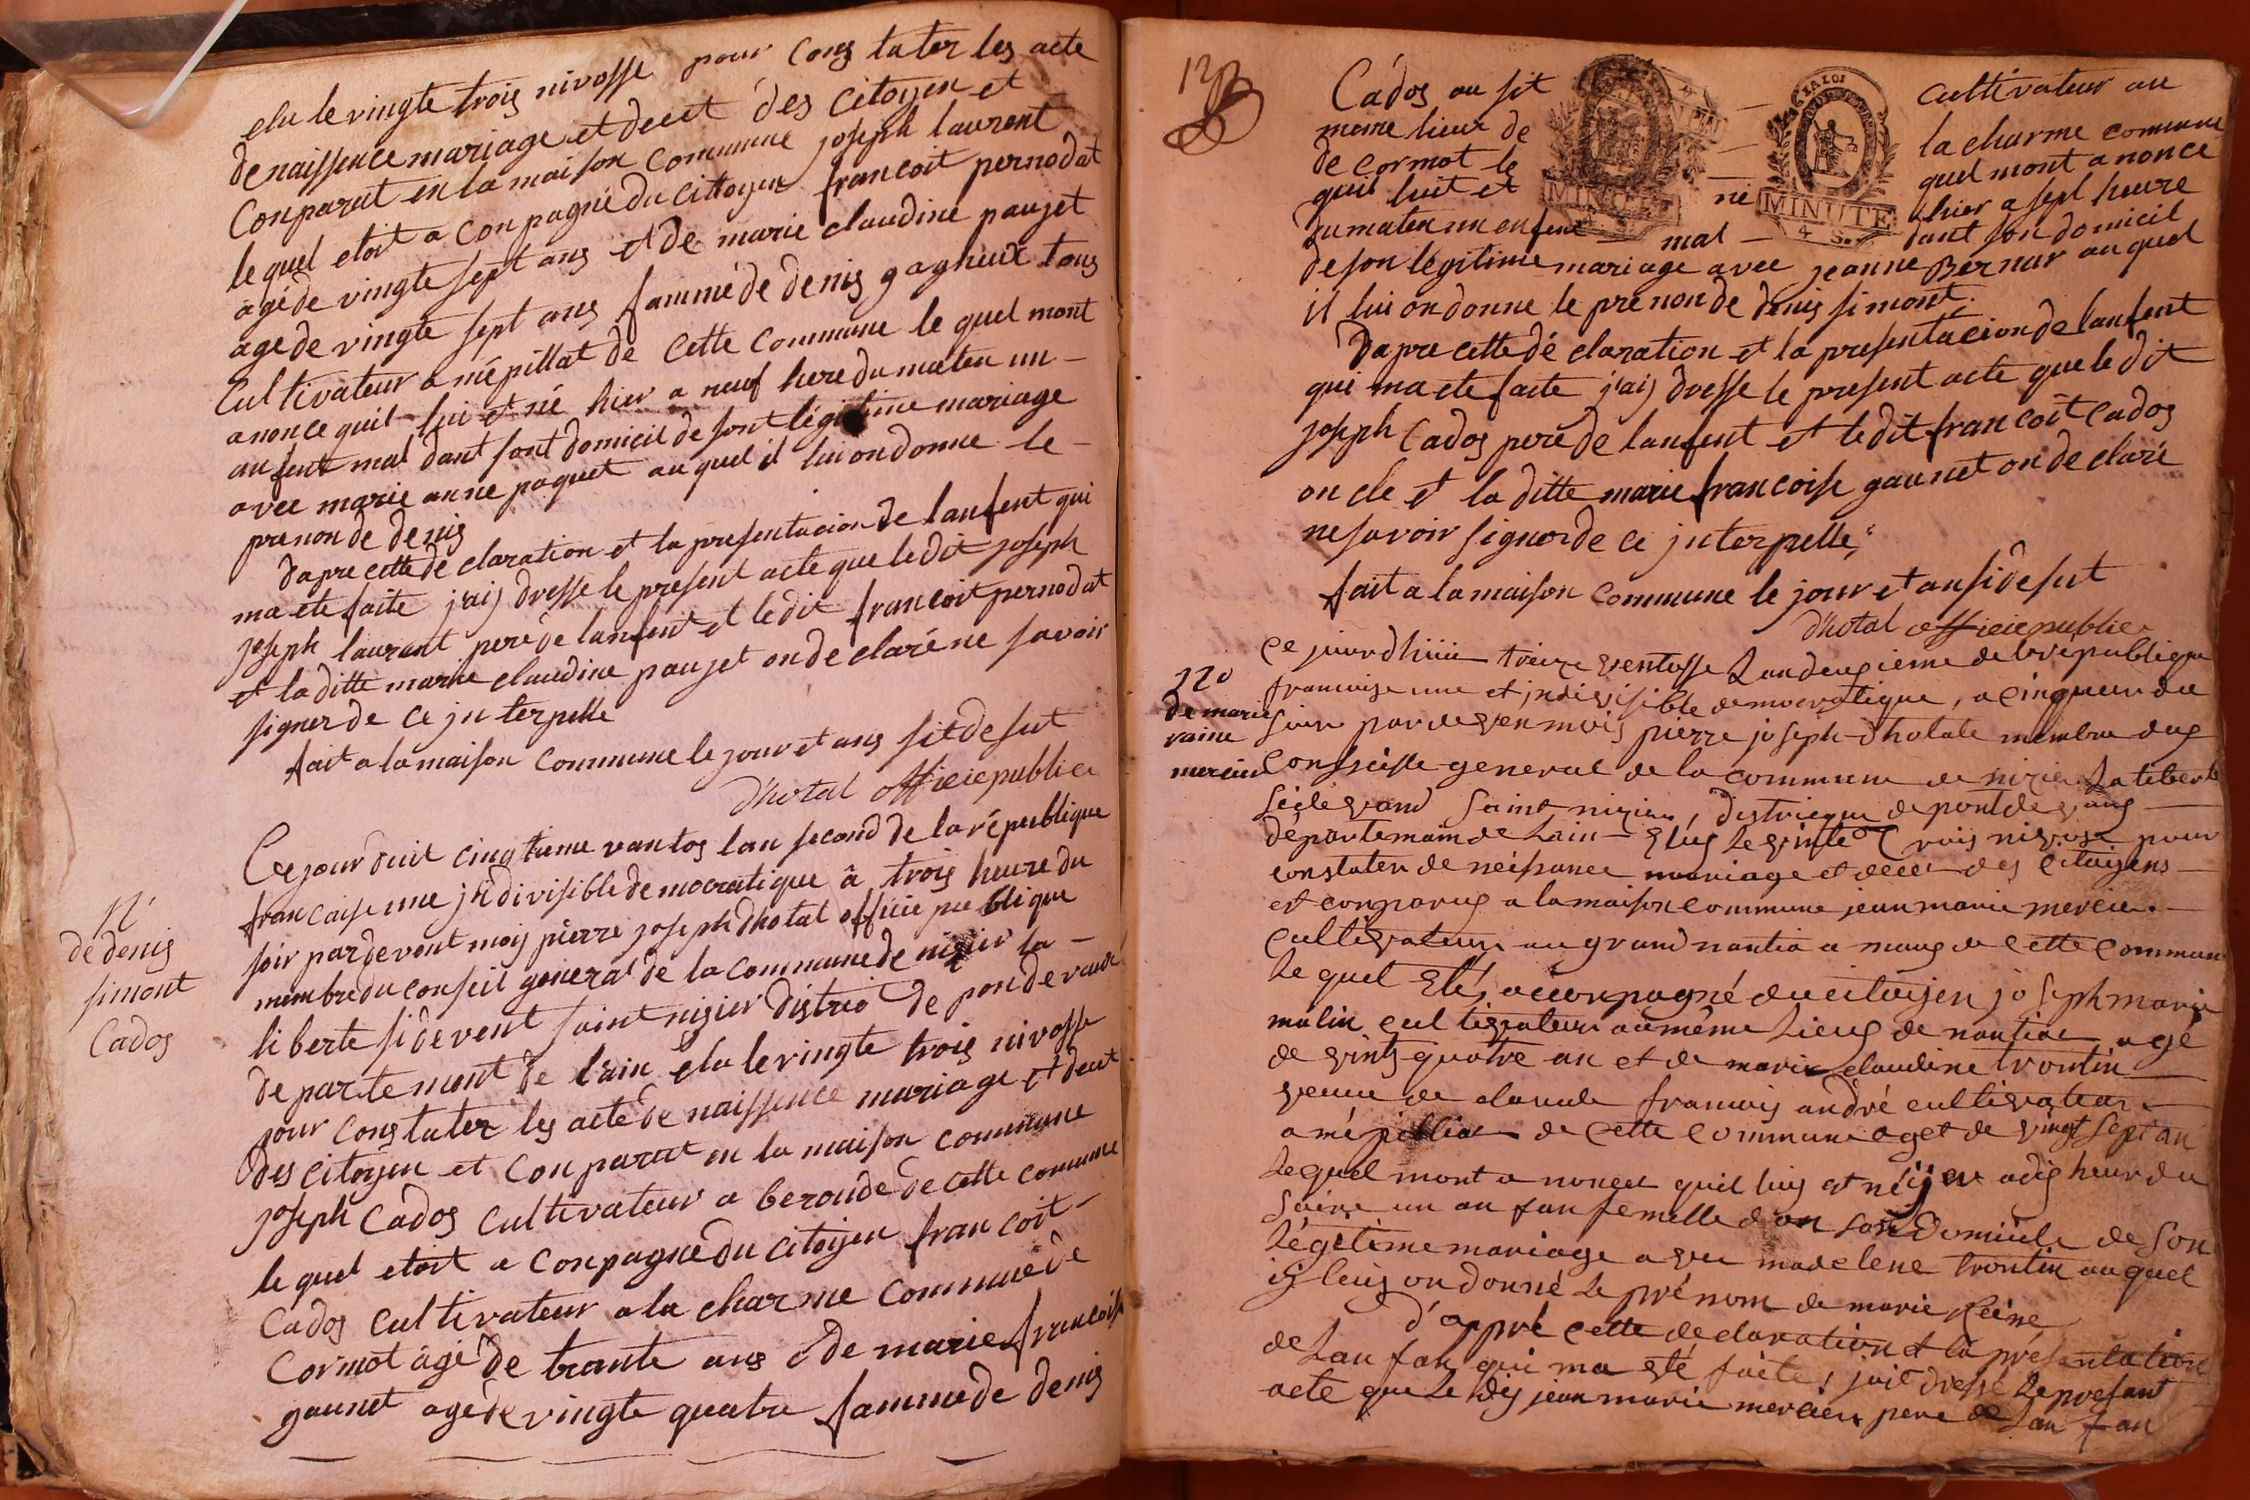 elu le vingte trois nivosse pour cons tater les acte
de naissence mariage et deut des citoyen et
Conparut en la maison commune joseph laurent
le quel etoit a conpagné du cittoyen francoit pernodat
agé de vingte sept ans et de marie claudine paujet
age de vingte sept ans famme de denis gagneux tous
Cultivateur a mépillat de cette commune le quel mont
anonce quil lui et né hier a neuf here du maten un
anfent mal dant sont domicil de sont légitime mariage
avec marie anne paquet au quel il lui on donne le
prenon de denis
Dapre cette de claration et la presentacion de lanfent qui
ma ete faite j'aij dresse le present acte que le dit joseph
joseph laurent pere de lanfent et le dit francoit pernodat
et la ditte marie claudine paujet on de claré ne savoir
signer de ce jnterpelle
fait a la maison commune le jour et ans sitdesut
dhotal officie publice
N'
de denis
simont
Cados
Ce jour duit cinqtieme vantos lan second de la république
francaise une jndivisible democratique â trois heure du
soir pardevent moij pierre joseph Dhotal officie publique
membre du conseil general de la commune de nizier la
liberte sidevent saint nizier distrio de pondevaude
departemont de l'ain elu le vingte trois nivosse
pour constater les acte de naissence mariage et deut
des citoyen et conparut en la maison commune
joseph Cados cultivateur a beroude de cette comune
le quel etoit a conpagne du citoijen francoit
Cados cultivateur a la charme commune de
Cormot âgé de trante ans & de marie francoise
gaunet age de vingte quatre famme de denis
12
Cados au sit cultivateur au
meme lieux de la charme commune
de cormot le quel mont anonce
quil luit et né hier a sept heure
du maten un enfent mal dant son domicil
de son légitime mariage avec jeanne Bernar au quel
il lui on donne le prenon de denis simont.
Dapre cette dé claration et la presentacion de lanfent
qui ma ete faite j'aij dresse le present acte que le dit
joseph Cados pere de lanfent et le dit francoit Cados
on cle et la ditte marie francoise gaunet on de claré
ne savoir signer de ce jnterpelle
fait a la maison commune le jour et an sidesut
d'hotal officie publice
MINUTE
4 S.
MINUTE
4 S.
LA LOI
N°
De marie
raine
mercier
ce jourdhuii treize ventosse Landeuxieme de la republique
francaise une et jndivisible democratique, a cinqueur du
soir par deven mois pierre joseph dholate membre dus
Conseille general de la commune de nizier La liberte
sidevand saint nizier, districque de pont de vaus
département de Lain Elus le vinte trois nivose pour
constater de néssance mariage et deces des citoijens
et conparus a la maison commune jean marie mercier
cultivateur au grand nantia a mans de cette commune
Le quel Eté, acconpagné du citoijen joseph marie
malin cultivateur au même Lieux de nantia agé
de vints quatre an et de marie claudine trontin
veuve de claude francois andré cultivateur
a mépillia de cette commune aget de vingt sept an
Le quel mont a noncee quil luis et né ijer a dis heur du
soire un an fan femelle dan son Domicile de son
Légitime mariage avec madelene trontin auquel
is luis on donné Le prénom de marie Reine
d'appré cette declaration et la présentation
de Lan fan qui ma été faite, jait dressé Le present
acte que Le dis jean marie mercier pere de Lan fan